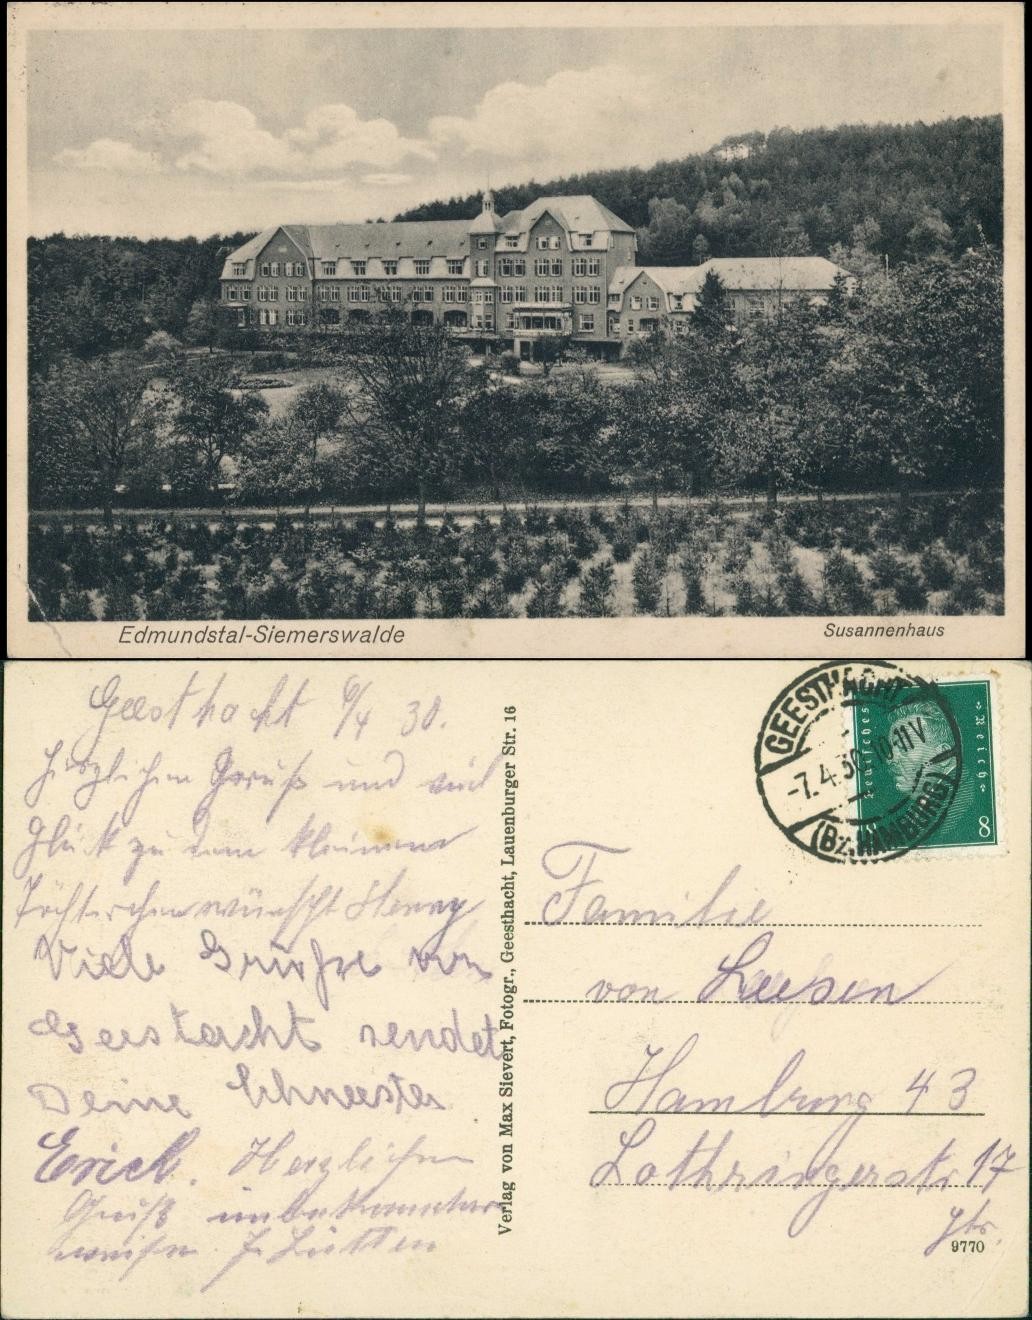 Edmundstal-Siemerswalde
Susannenhaus
Geesthacht 6/4 30.
Herzlichen Gruß und viel
Glück zu dem kleinen
Töchterchen wünscht Henny
Viele Grüße von
Geestacht sendet
Deine
Erich. Herzlichen
Gruß unbekannter
weise. J. Lütten
Verlag von Max Sievert, Fotogr., Geesthacht, Lauenburger Str. 16
GEESTHACHT
-7.4.30.10-11V
(BZ. HAMBURG)
Deutsches
Reich
8
Familie
von
Hamburg 43
Lothringerstr. 17
9770